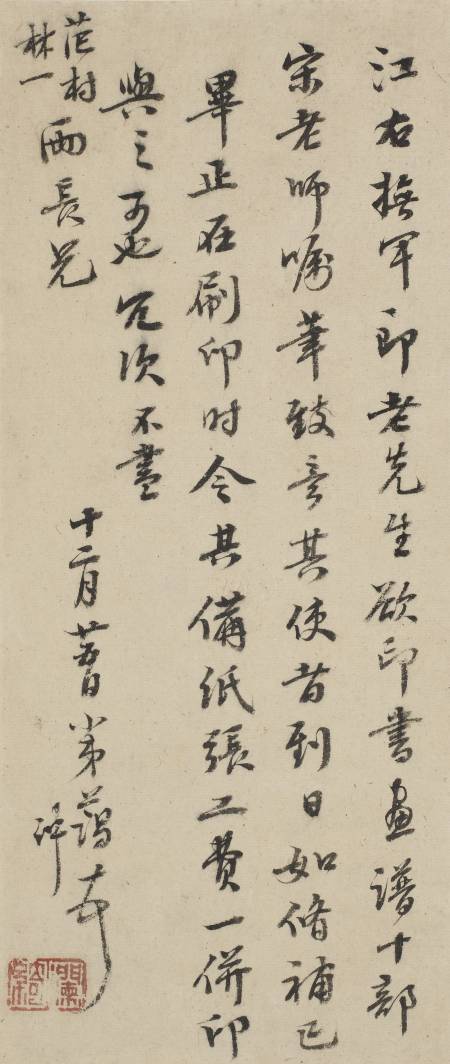 江右撫軍郎老先生欲印書畫譜十部
宋老師囑筆致意其使者到日如脩補已
畢正在刷印时令其備紙張工費一併印
與之可也冗次不盡
十二月廿五日弟藹奇
范村
林一
兩長兄